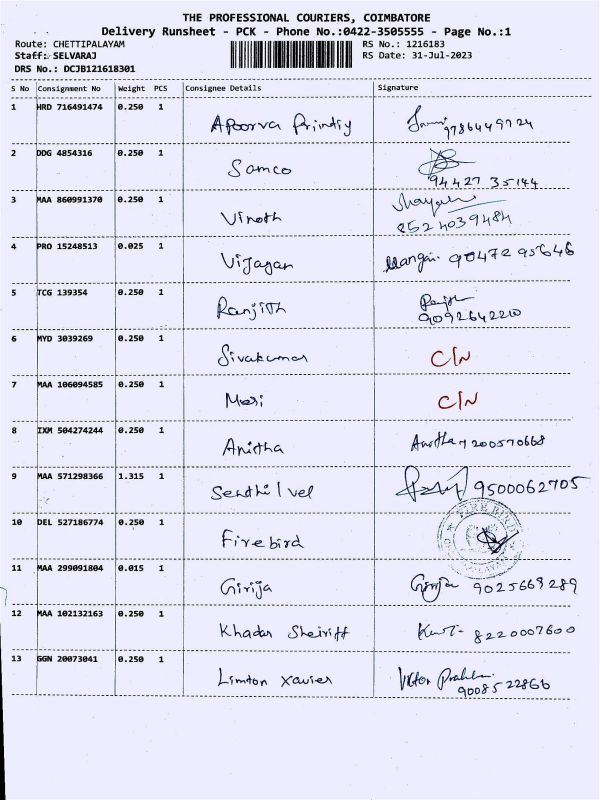 THE PROFESSIONAL COURIERS, COIMBATORE
Delivery Runsheet - PCK - Phone No.:0422-3505555 - Page No.:1
Route: CHETTIPALAYAM RS No.: 1216183
Staff: SELVARAJ RS Date: 31-Jul-2023
DRS No.: DCJB121618301
S No Consignment No Weight PCS Consignee Details Signature
1 HRD 716491474 0.250 1
Apoorva Prindiy 9786449724
2 DDG 4854316 0.250 1
Samco
94427 35144
3 MAA 860991370 0.250 1
Vinoth
8524039484
4 PRO 15248513 0.025 1
Vijayan 90472 95646
5 TCG 139354 0.250 1
Ranjith
9092642210
6 MYD 3039269 0.250 1
Sivakumar C/N
7 MAA 106094585 0.250 1
Mari C/N
8 IXM 504274244 0.250 1
Anitha Anitha 7200570668
9 MAA 571298366 1.315 1
Senthil vel 9500062705
10 DEL 527186774 0.250 1
Firebird FIRE BIRD
11 MAA 299091804 0.015 1
Girija Girija 9025669289
12 MAA 102132163 0.250 1
Khadar Sheiriff 8220007600
13 GGN 20073041 0.250 1
Limton Xavier Victor
9008522866